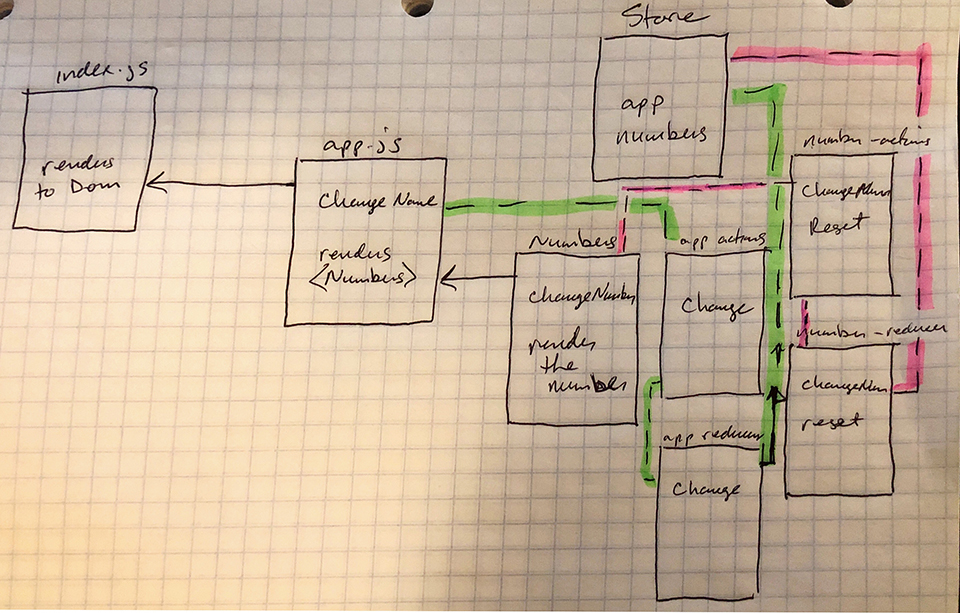 Store
app
numbers
index.js
renders
to Dom
app.js
Change Name
renders
<Numbers>
Numbers
changeNumber
render
the
number
app actions
Change
app reducer
Change
number-actions
ChangeNum
Reset
number-reducer
changeNum
reset